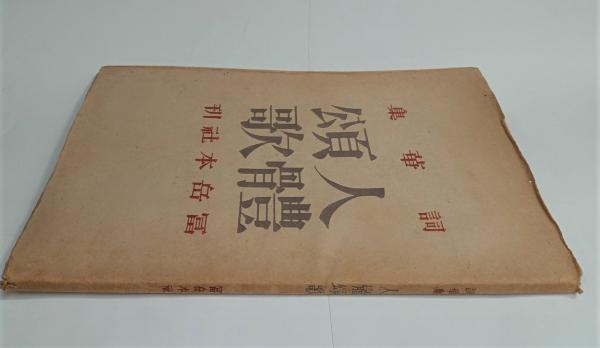 詞華集
人體
頌歌
富岳本社刊
詞華集 人體頌歌 富岳本社